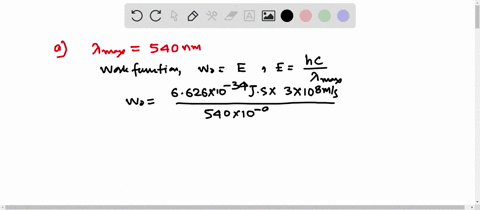 a) λmax = 540 nm
Work function, W₀ = E , E = hc / λmax
W₀ = 6.626×10⁻³⁴ J.s × 3×10⁸ m/s / 540×10⁻⁰